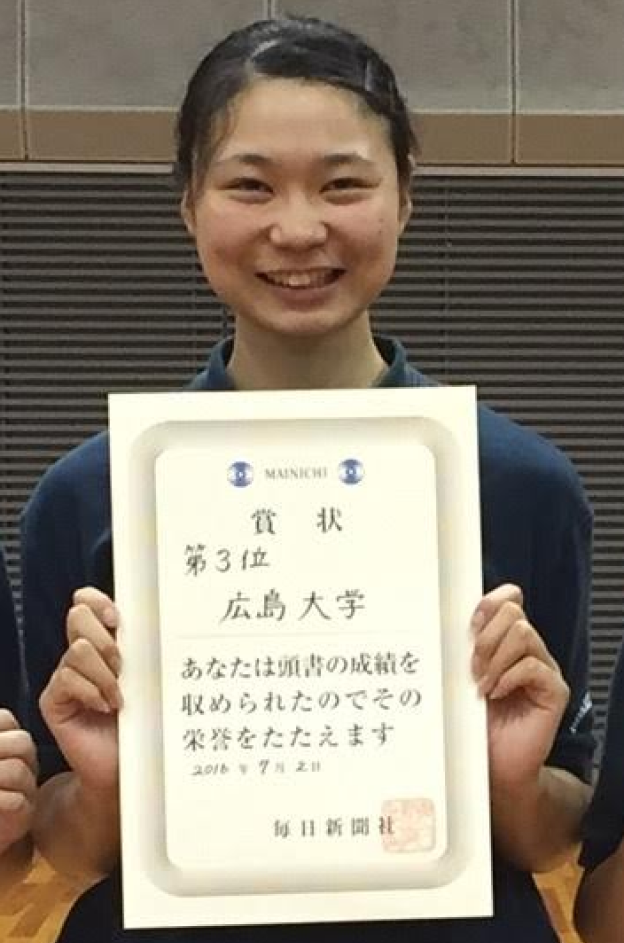 MAINICHI
賞 状
第3位
広島大学
あなたは頭書の成績を
収められたのでその
栄誉をたたえます
2016年7月2日
毎日新聞社